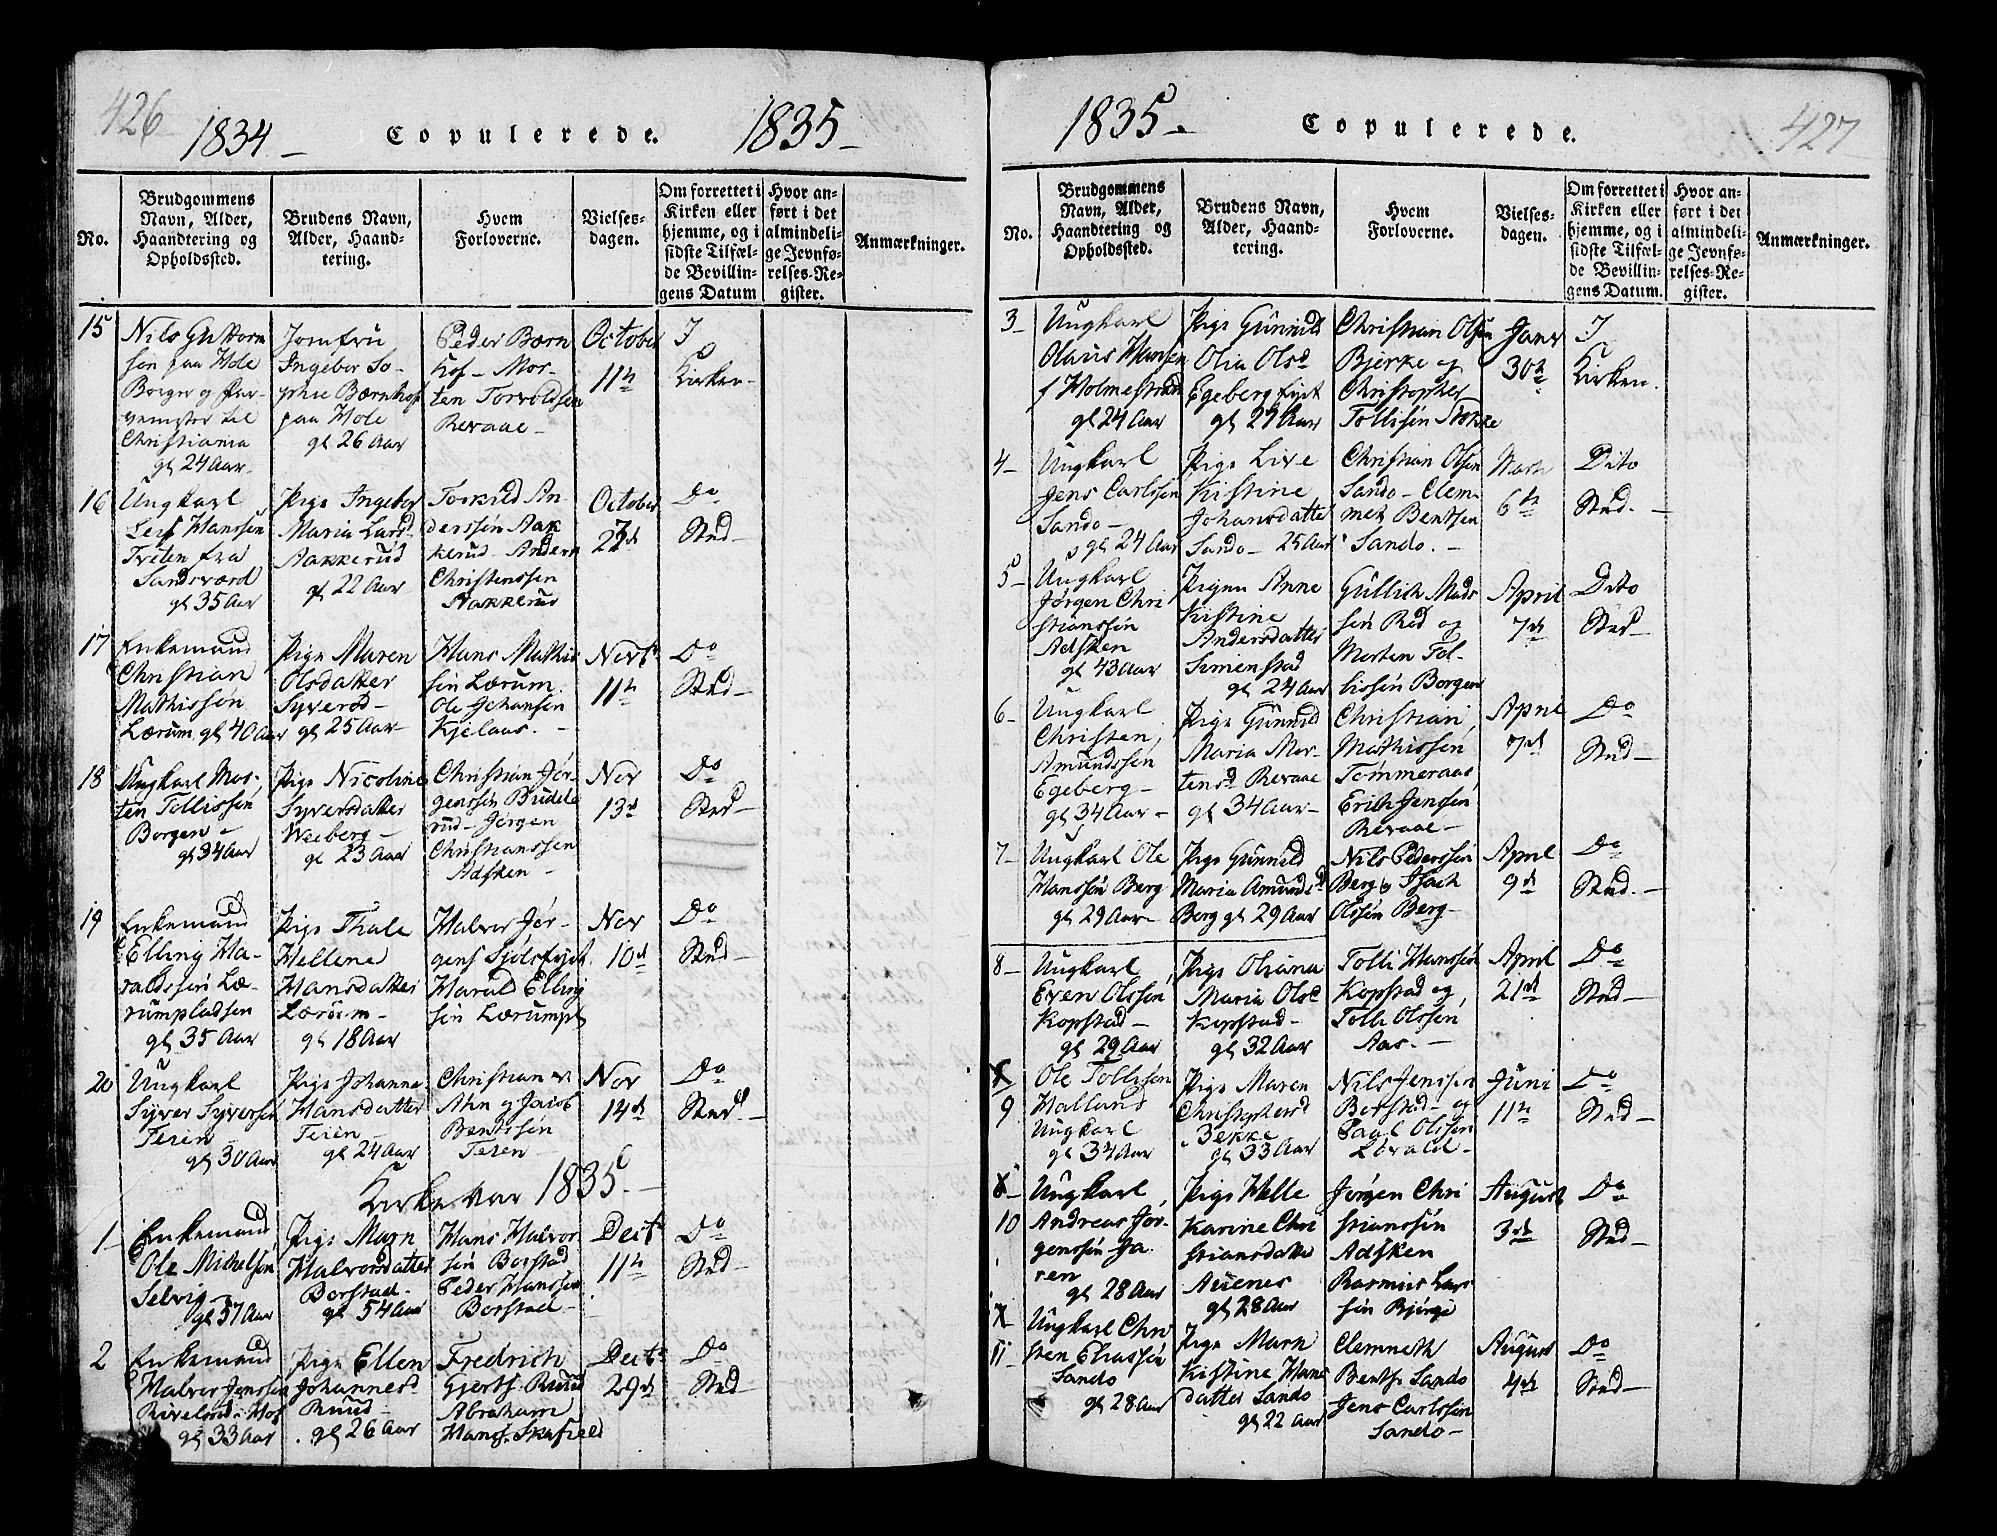 426
1834 — Copulerede. 1835 —
No.
Brudgommens Navn, Alder, Haandtering og Opholdssted.
Brudens Navn, Alder, Haandtering.
Hvem Forloverne.
Vielsesdagen.
Om forrettet i Kirken eller hjemme, og i sidste Tilfælde Bevillingens Datum
Hvor anført i det almindelige Jevnførelses-Register.
Anmærkninger.
15
Nils Guttorm
sen paa Hole
Borger og Far-
vemester til
Christiania
gl 24 Aar-
Jomfru
Ingebor So-
phie Bærnhof
paa Hole
gl 26 Aar
Peder Bærn
hof - Mor-
ten Torvoldsen
Revaae -
October
11te
I
Kirken-
16
Ungkarl
Leif Hanssen
Tveten fra
Sandsværd
gl 35 Aar
Pige Ingebor
Maria Larsd
Aakkerud
gl 22 Aar
Torkild An-
derssen Aak
kerud - Anders
Christenssen
Aakkerud
October
22d
Do
Sted -
17
Enkemand
Christian
Mathissen
Lærum gl 40 Aar
Pige Maren
Olsdatter
Syverød -
gl 25 Aar -
Hans Mathis
sen Lærum.
Ole Johansen
Kjelaas. -
Novbr
11te
Do
Sted -
18
Ungkarl Mor-
ten Tollissen
Borgen -
gl 34 Aar
Pige Nicoline
Syversdatter
Weeberg -
gl 23 Aar
Christian Jør-
genssen Budele
rud - Jørgen
Christianssen
Adsken -
Nov
13d
Do
Sted -
19
Enkemand
Elling Ha-
raldssen Læ-
rumpladsen
gl 35 Aar
Pige Thale
Hellene
Hansdatter
Lærum -
gl 18 Aar
Halvor Jør-
gens Sjølsfyst.
Harald Elling
sen Lærumpl
Nov
10d
Do
Sted -
20
Ungkarl
Syver Syversen
Teien -
gl 30 Aar
Pige Johanne
Hansdatter
Teien -
gl 24 Aar
Christian
Ahn og Jacob
Bentssen
Teien -
Nov
14d
Do
Sted -
Kirke Aar 1835. -
1 -
Enkemand
Ole Michelsen
Selvig -
gl 57 Aar
Pige Marn
Halvorsdatter
Borstad -
gl 54 Aar
Hans Halvor
sen Borstad
Peder Hanssen
Borstad -
Decbr
11te
Do
Sted -
2
Enkemand
Halvor Jenssen
i Hof
gl 33 Aar
Pige Ellen
Johannesd
Ruud -
gl 26 Aar
Fredrich
Gjerts. Ruud
Abraham
Hans. Skafjeld
Decbr
29d
Do
Sted -
1835. — Copulerede. 427
No.
Brudgommens Navn, Alder, Haandtering og Opholdssted.
Brudens Navn, Alder, Haandtering.
Hvem Forloverne.
Vielsesdagen.
Om forrettet i Kirken eller hjemme, og i sidste Tilfælde Bevillingens Datum.
Hvor anført i det almindelige Jevnførelses-Register.
Anmærkninger.
3 -
Ungkarl
Olaus Hansen
f Holmestrand
gl 24 Aar
Pige Gunnild
Olia Olsd
Egeberg
gl 29 Aar
Christian Olsen
Bjerke og
Christopher
Tollisen Stokke
Janr
30te
I
Kirken.
4 -
Ungkarl
Jens Carlssen
Sando -
gl 24 Aar
Pige Live
Kistine
Johansdatter
Sando - 25 Aar
Christian Olsen
Sando - Clem
met Bentsen
Sando. -
6te
Dito
Sted. -
5 -
Ungkarl
Jørgen Chri
stianssen
Adsken
gl 43 Aar
Pigen Anne
Kistine
Andersdatter
Simenstad
gl 24 Aar
Gullich Mads
sen Rød og
Morten Tol-
lissen Borgen
April
7de
Dito
Sted -
6 -
Ungkarl
Christen
Amundssen
Egeberg -
gl 34 Aar -
Pige Gunnild
Maria Mor-
tensd Revaae
gl 34 Aar -
Christian
Mathissen
Tømmeraas
Erich Jenssen
Revaae -
April
7d
Do
Sted -
7 -
Ungkarl Ole
Hanssen Berg
gl 29 Aar -
Pige Gunnild
Maria Amundsd
Berg gl 29 Aar
Nils Pederssen
Berg og Isach
Olssen Berg -
April
9d
Do
Sted. -
8 -
Ungkarl
Even Olssen
Kopstad -
gl 29 Aar
Pige Oliana
Maria Olsd
Kopstad -
gl 32 Aar
Tolli Hanssen
Kopstad og
Tolli Olssen
Aas. -
April
21d
Do
Sted -
9
Ole Tollissen
Halland
Ungkarl
gl 34 Aar
Pige Maren
Christophersd
Bekke
gl 33 Aar
Nils Jenssen
Borstad - og
Paul Olssen
Løvald -
Juni
11te
Do
Sted -
10
Ungkarl
Andreas Jør-
genssen Ja-
ren
gl 28 Aar
Pige Helle
Karine Chri
stiansdatter
Auenes
gl 28 Aar
Jørgen Chri
stianssen
Adsken
Rasmus Lars
sen Bjerge
August
3d
Do
Sted -
11 -
Ungkarl Chri
sten Eliassen
Sando
gl 28 Aar
Pige Marn
Kistine Hans
datter Sando
gl 22 Aar
Clemmeth
Bents. Sando
Jens Carlssen
Sando -
August
4de
Do
Sted -